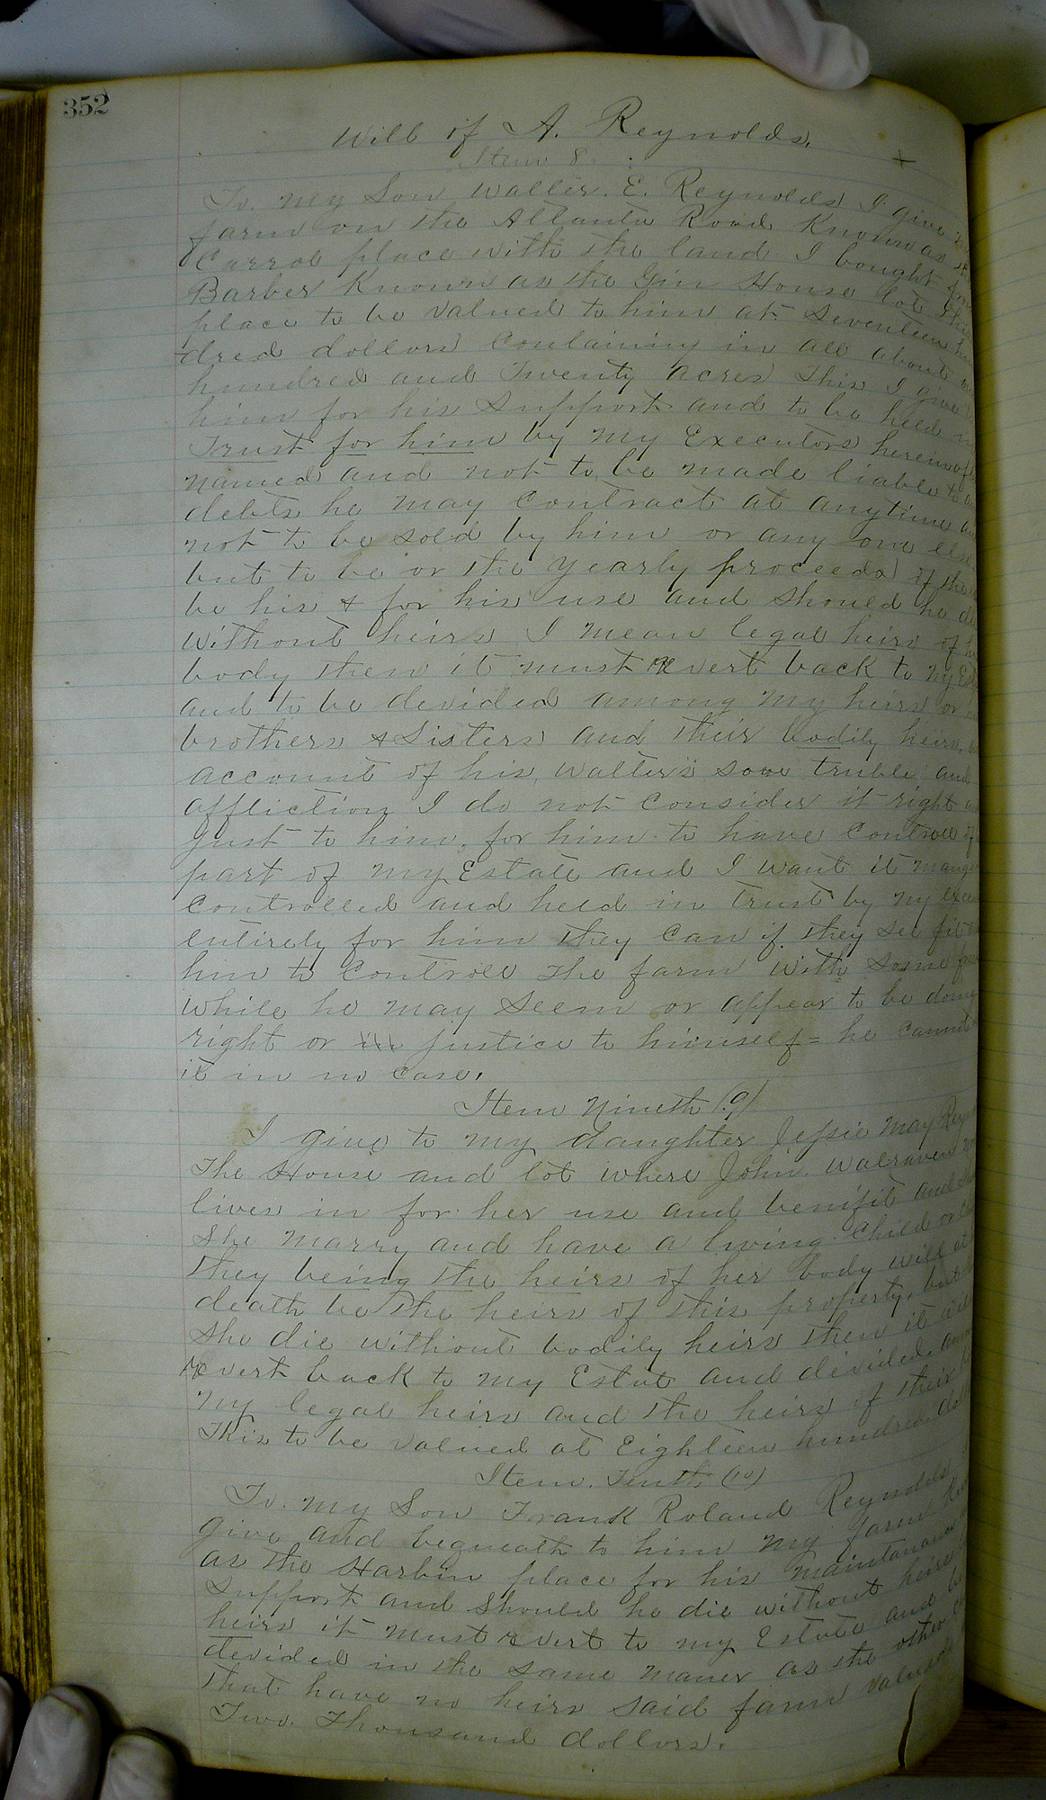 352
Will of A. Reynolds.
Item 8.
To. my Son Walter. E. Reynolds I give
farm on the Atlanta Road Known as
Carroe place with the land I bought from
Barber Known as the Gin House lot this
place to be valued to him at Seventeen
dred dollars Containing in all about
hundred and Twenty acres This I give
him for his Support and to be held
Trust for him by my Executors herein
named and not to be made liable to
debts he may Contract at anytime
not to be sold by him or any one else
but to be or the yearly proceeds of the
be his & for his use and should he
without heirs I mean legal heirs of
body then it must revert back to my
and to be devided among my heirs or
brothers & Sisters and their bodily heirs,
account of his, Walter's sore truble, and
affliction I do not consider it right
Just to him, for him to have controll of
part of my Estate and I want it
Controlled and held in trust by my
entirely for him they can if they see fit
him to controll the farm with some
while he may seem or appear to be doing
right or in justice to himself = he cannot
it in no case.
Item Nineth (9)
I give to my daughter Jessie May
The House and lot where John Walraven
lives in for her use and benifit and
She marry and have a living Child or
they being the heirs of her body will at
death be the heirs of this property, but
She die without bodily heirs then it will
revert back to my Estat and devided
my legal heirs and the heirs of their
This to be valued at Eighteen hundred
Item. Tenth (10)
To. my Son Frank Roland Reynolds
give and bequeath to him my farm
as the Harbin place for his maintanance
Support and should he die without heirs
heirs it must revert to my Estate and
devided in the same maner as the other
that have no heirs said farm valued
Two. Thousand dollars.